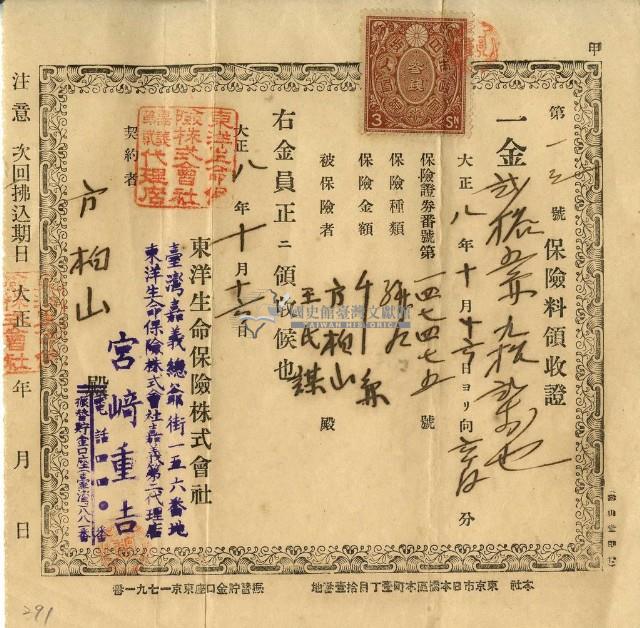 甲
第一三號保險料領收證
一金貳拾五圓九拾錢也
大正八年十月十六日ヨリ向 分
保險證券番號第一四七四七五號
保險種類
保險金額
被保險者 方柏山 王氏謀 殿
右金員正ニ領收候也
大正八年十月十六日
東洋生命保險株式會社
臺灣嘉義總爺街一五六番地
東洋生命保險株式會社嘉義第二代理店
宮崎重吉
契約者 方柏山 殿
注意 次回拂込期日 大正 年 月 日
本社 東京市日本橋區本町壹丁目拾壹番地
振替貯金口座東京一七九一番
3 SN
國史館臺灣文獻館
TAIWAN HISTORICA
291